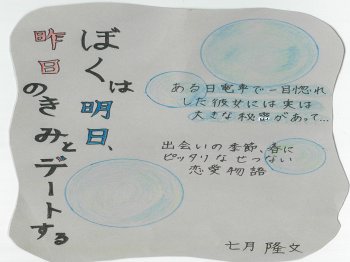 ぼくは明日、
昨日のきみとデートする
ある日電車で一目惚れ
した彼女には実は
大きな秘密があって…
出会いの季節、春に
ピッタリなせつない
恋愛物語
七月隆文